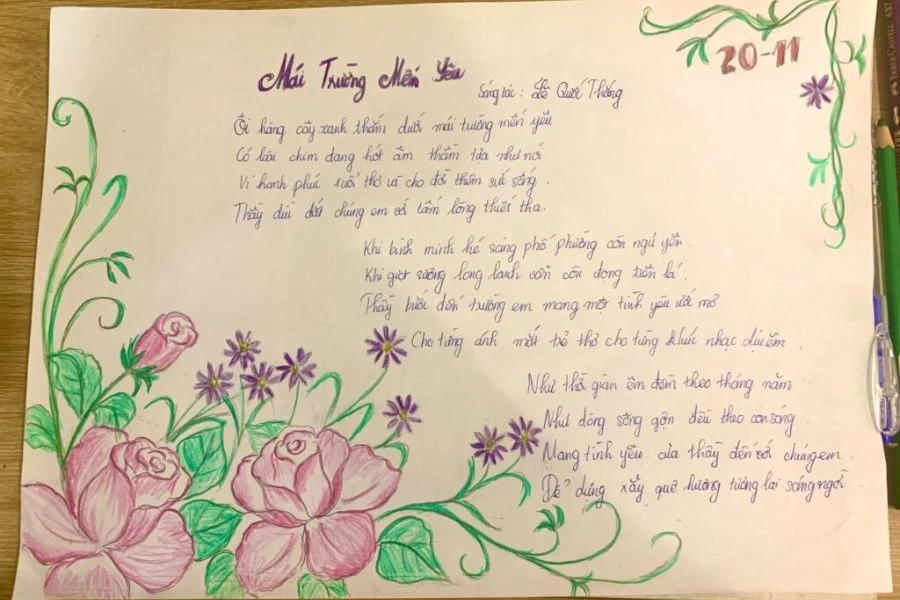 Mái Trường Mến Yêu
20-11
Sáng tác : Lê Quốc Thắng
Ôi hàng cây xanh thắm dưới mái trường mến yêu
Có loài chim đang hót âm thầm tựa như nói
Vì hạnh phúc tuổi thơ và cho đời thêm sức sống .
Thầy dìu dắt chúng em với tấm lòng thiết tha.
Khi bình minh hé sáng phố phường còn ngủ yên .
Khi giọt sương long lanh vẫn còn đọng trên lá .
Thầy bước đến trường em mang một tình yêu ước mơ
Cho từng ánh mắt trẻ thơ cho từng khúc nhạc dịu êm .
Như thời gian êm đềm theo tháng năm
Như dòng sông gợn đều theo cơn sóng .
Mang tình yêu của thầy đến với chúng em .
Để dựng xây quê hương tương lai sáng ngời .
FABER-CASTELL